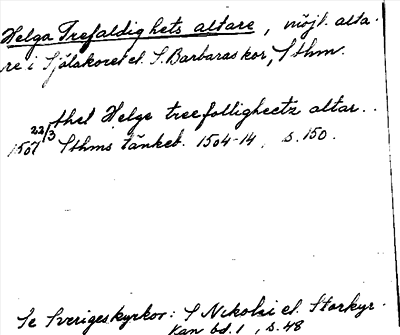 Helga Trefaldighets altare, möjl. alta-
re i Själakoret el. S. Barbaras kor, Sthm.
thet Helge treefolligheetz altar..
1507 22/3 Sthms tänkeb. 1504-14, s. 150.
Se Sveriges kyrkor: S Nikolai el. Storkyr-
kan bd. 1, s. 48